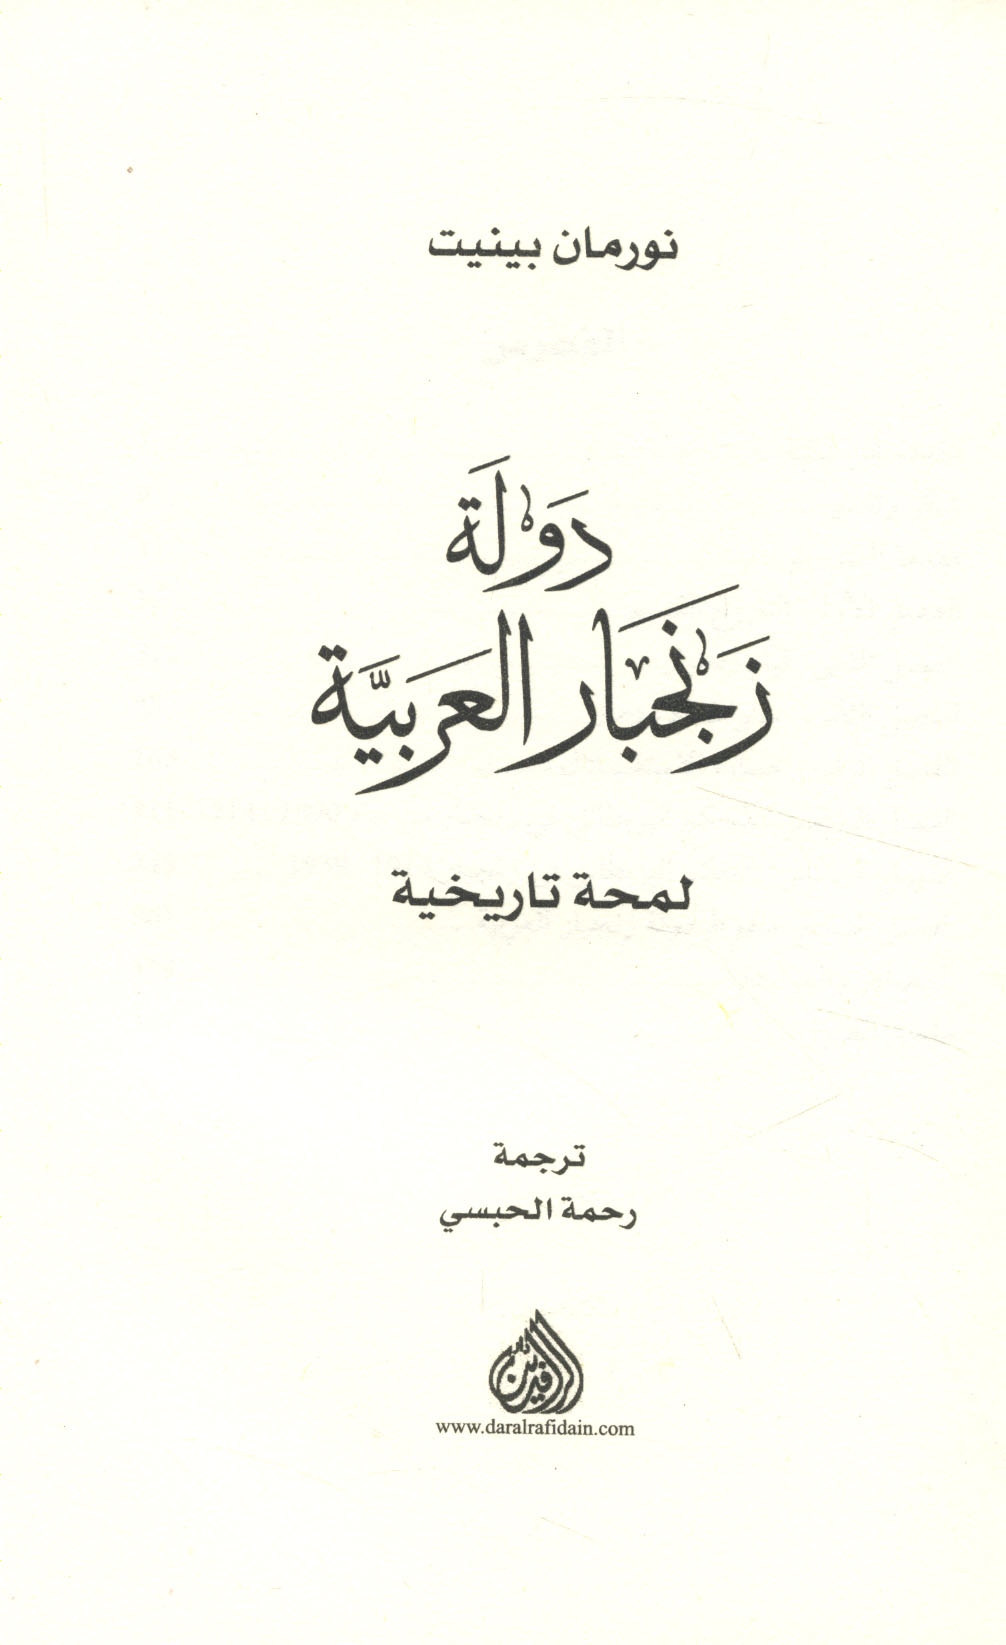 نورمان بينيت
دَوْلَة
زَنْجبَار العَرَبيَّة
لمحة تاريخية
ترجمة
رحمة الحبسي
دار الرافدين
www.daralrafidain.com